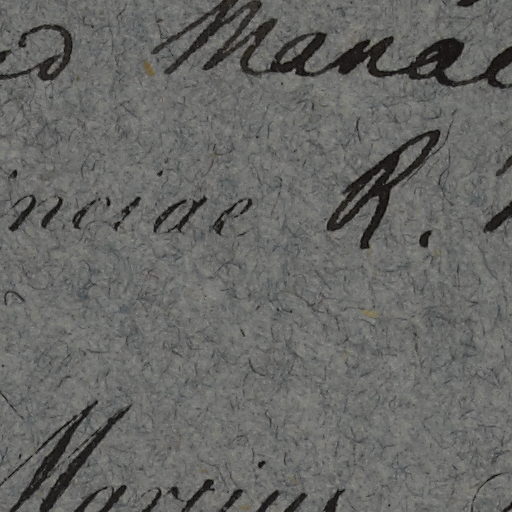 ed Manáe
inciae R.
Martius